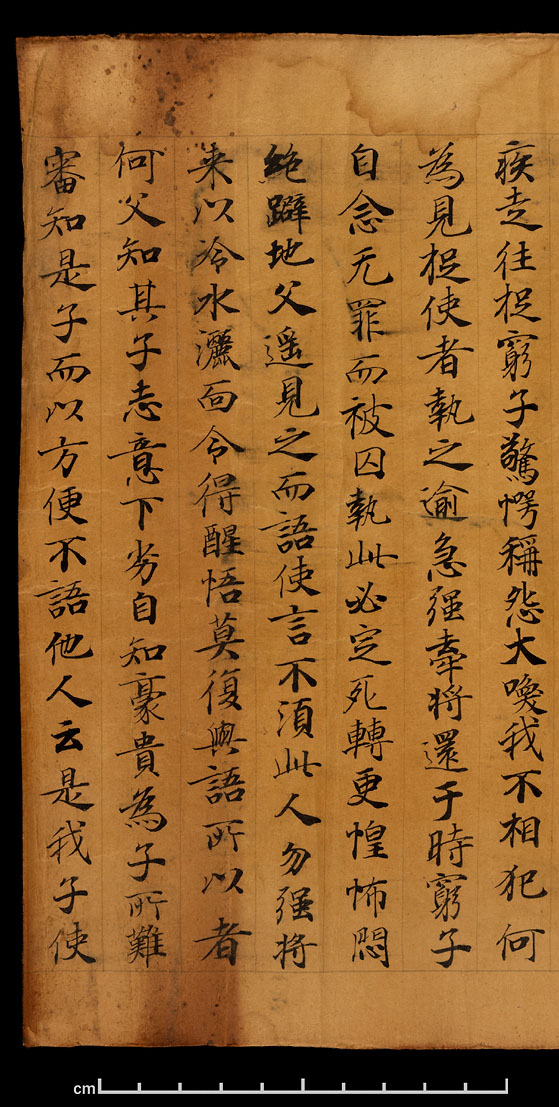 疾走往捉窮子驚愕稱怨大喚我不相犯何
為見捉使者執之逾急强牽將還于時窮子
自念无罪而被囚執此必定死轉更惶怖悶
絶躃地父遥見之而語使言不湏此人勿强將
来以冷水灑面令得醒悟莫復與語所以者
何父知其子志意下劣自知豪貴為子所難
審知是子而以方便不語他人云是我子使
cm